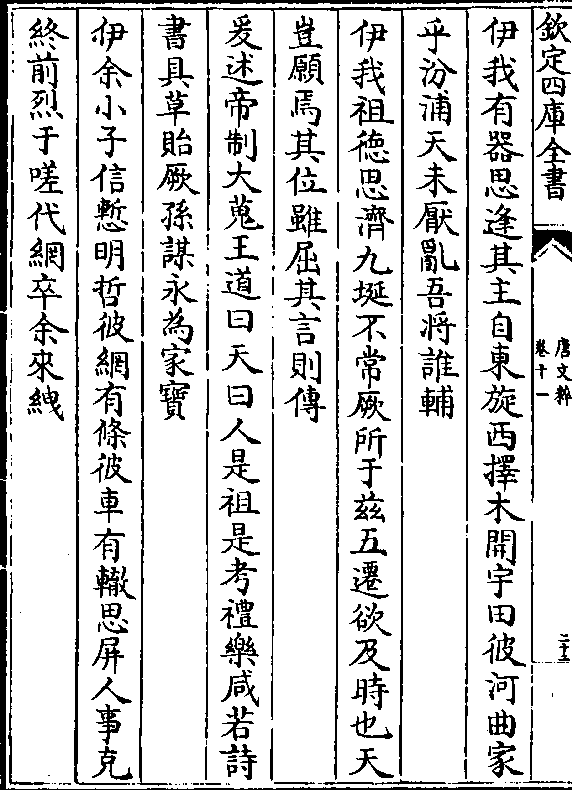 欽定四庫全書
唐文粹
卷十一
二十三
伊我有器思逢其主自東旋西擇木開宇田彼河曲家
乎汾浦天未厭亂吾將誰輔
伊我祖德思濟九埏不常厥所于兹五遷欲及時也天
豈願焉其位雖屈其言則傳
爰述帝制大蒐王道曰天曰人是祖是考禮樂咸若詩
書具草貽厥孫謀永為家寶
伊余小子信慙明哲彼網有條彼車有轍思屏人事克
終前烈于嗟代網卒余來絏